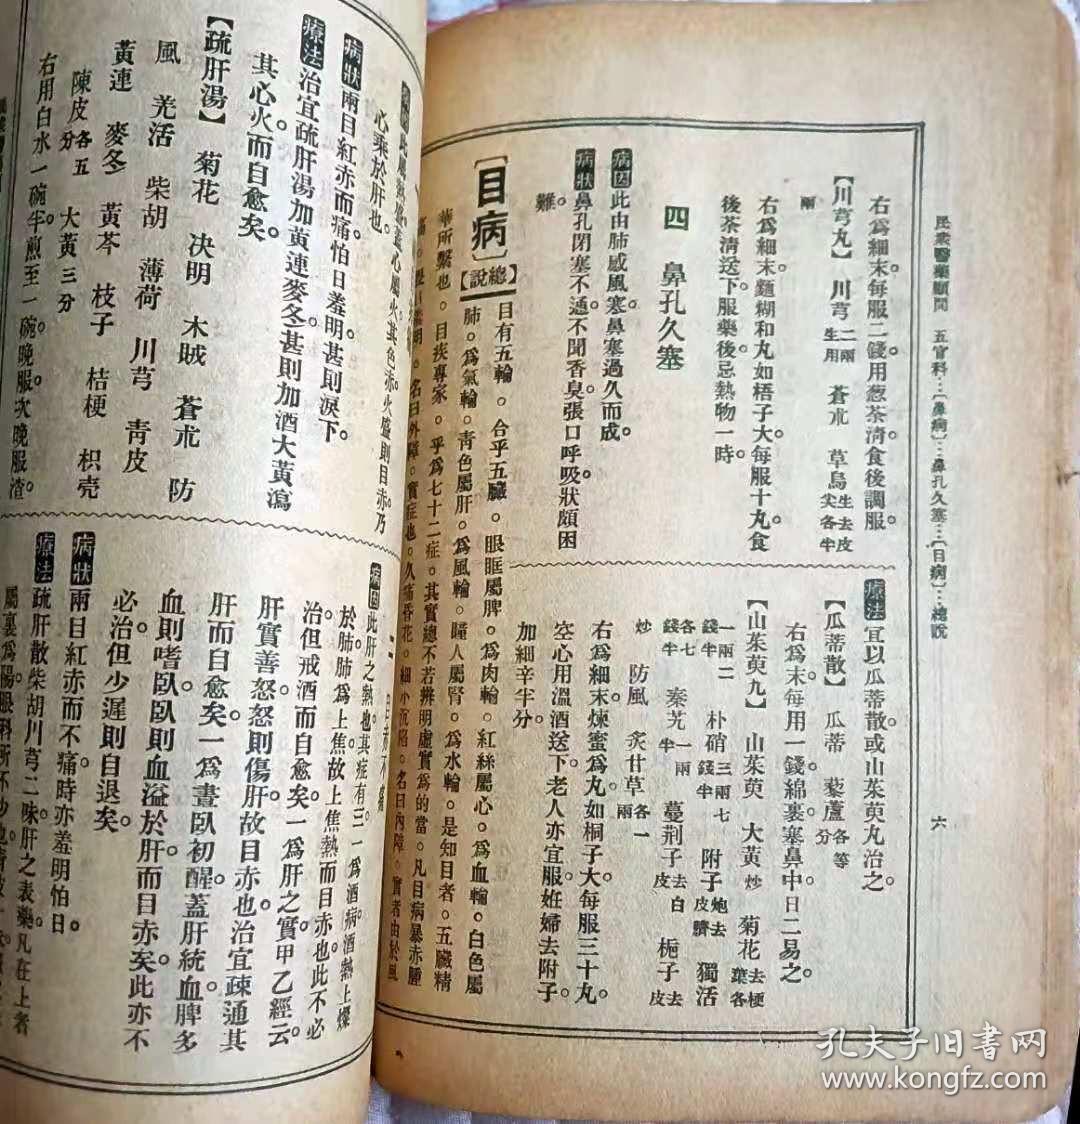 民衆醫藥顧問　五官科…〔鼻病〕…鼻孔久塞…〔目病〕…總說　六
右爲細末每服二錢用葱茶清食後調服。
【川芎丸】　川芎二兩生用　蒼朮　草烏生去皮尖各半
兩
右爲細末麵糊和丸如梧子大每服十丸食
後茶清送下服藥後忌熱物一時。
四　鼻孔久塞
病因　此由肺感風寒鼻塞過久而成。
病狀　鼻孔閉塞不通不聞香臭張口呼吸狀頗困
難。
療法　宜以瓜蒂散或山茱萸丸治之。
【瓜蒂散】　瓜蒂　藜蘆各等分
右爲末每用一錢綿裹塞鼻中日二易之。
【山茱萸丸】　山茱萸　大黃炒　菊花去梗葉各
一兩二錢半　朴硝三兩七錢半　附子炮去皮臍　獨活
各七錢半　秦艽一兩半　蔓荆子去白皮　梔子去皮
炒　防風　炙甘草各一兩
右爲細末煉蜜爲丸如桐子大每服三十丸
空心用溫酒送下老人亦宜服妊婦去附子
加細辛半分。
〔目病〕
【總說】　目有五輪。合乎五臟。眼眶屬脾。爲肉輪。紅絲屬心。爲血輪。白色屬
肺。爲氣輪。青色屬肝。爲風輪。瞳人屬腎。爲水輪。是知目者。五臟精
華所繫也。目疾專家。乎爲七十二症。其實總不若辨明虛實爲的當。凡目病暴赤腫
痛。羞明。名曰外障。實症也。久痛昏花。細小沉陷。名曰內障。實者由於風
心乘於肝也。
病狀　兩目紅赤而痛怕日羞明甚則淚下。
療法　治宜疏肝湯加黃連麥冬甚則加酒大黃瀉
其心火而自愈矣。
【疏肝湯】　菊花　決明　木賊　蒼朮　防
風　羌活　柴胡　薄荷　川芎　青皮
黃連　麥冬　黃芩　枝子　桔梗　枳壳
陳皮各五分　大黃三分
右用白水一碗半煎至一碗晚服次晚服渣。
病因　此肝之熱也其症有三一爲酒病酒熱上燥
於肺肺爲上焦故上焦熱而目赤也此不必
治但戒酒而自愈矣一爲肝之實甲乙經云
肝實善怒怒則傷肝故目赤也治宜疎通其
肝而自愈矣一爲晝臥初醒蓋肝統血脾多
血則嗜臥臥則血溢於肝而目赤矣此亦不
必治但少遲則自退矣。
病狀　兩目紅赤而不痛時亦羞明怕日。
療法　疏肝散柴胡川芎二味肝之表藥凡在上者
孔夫子旧書网
www.kongfz.com